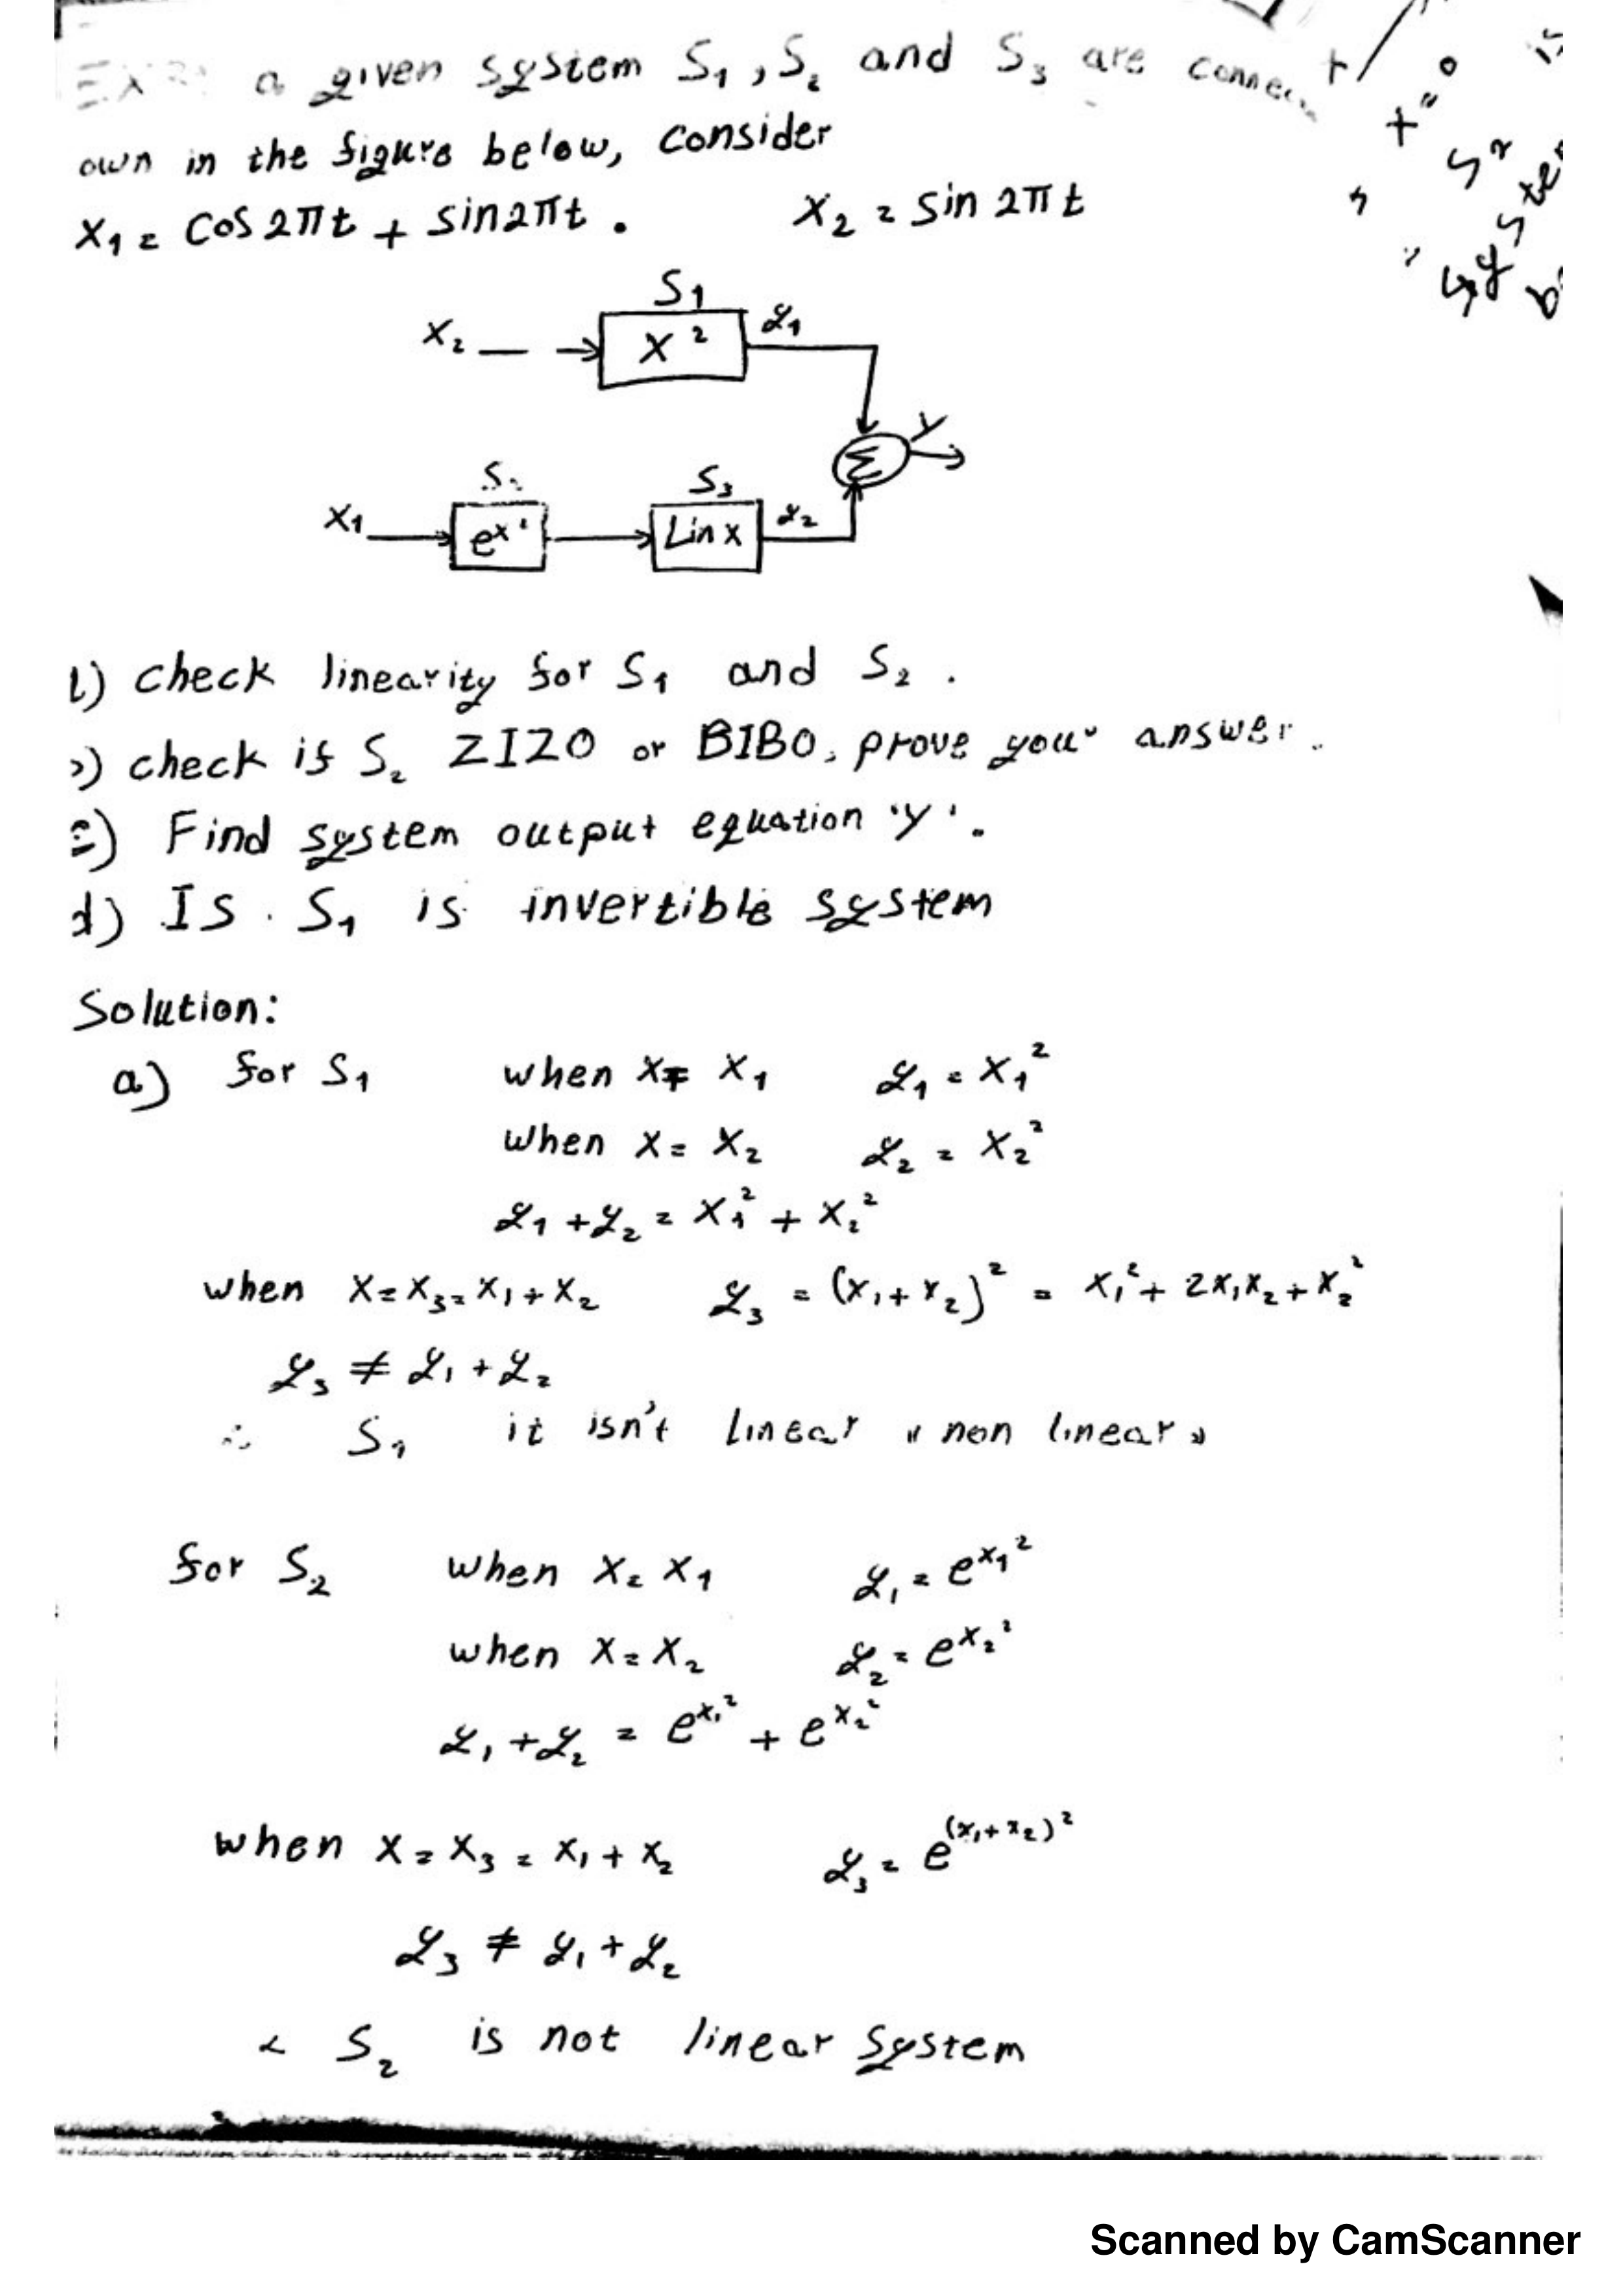 a given system S₁, S₂ and S₃ are
own in the figure below, consider
X₁ = cos 2πt + sin 2πt . X₂ = sin 2πt
S₁
X₂ → X² y₁
Y
Σ
S₃
X₁ → eˣ² → Lin x y₂
1) check linearity for S₁ and S₂ .
check if S₂ ZIZO or BIBO, prove your answer.
Find system output equation 'Y'.
d) IS . S₁ is invertible system
Solution:
a) for S₁ when X = X₁ y₁ = X₁²
when X = X₂ y₂ = X₂²
y₁ + y₂ = X₁² + X₂²
when X = X₃ = X₁ + X₂ y₃ = (X₁ + X₂)² = X₁² + 2X₁X₂ + X₂²
y₃ ≠ y₁ + y₂
∴ S₁ it isn't linear « non linear »
for S₂ when X = X₁ y₁ = e^X₁²
when X = X₂ y₂ = e^X₂²
y₁ + y₂ = e^X₁² + e^X₂²
when X = X₃ = X₁ + X₂ y₃ = e^(X₁+X₂)²
y₃ ≠ y₁ + y₂
S₂ is not linear system
Scanned by CamScanner